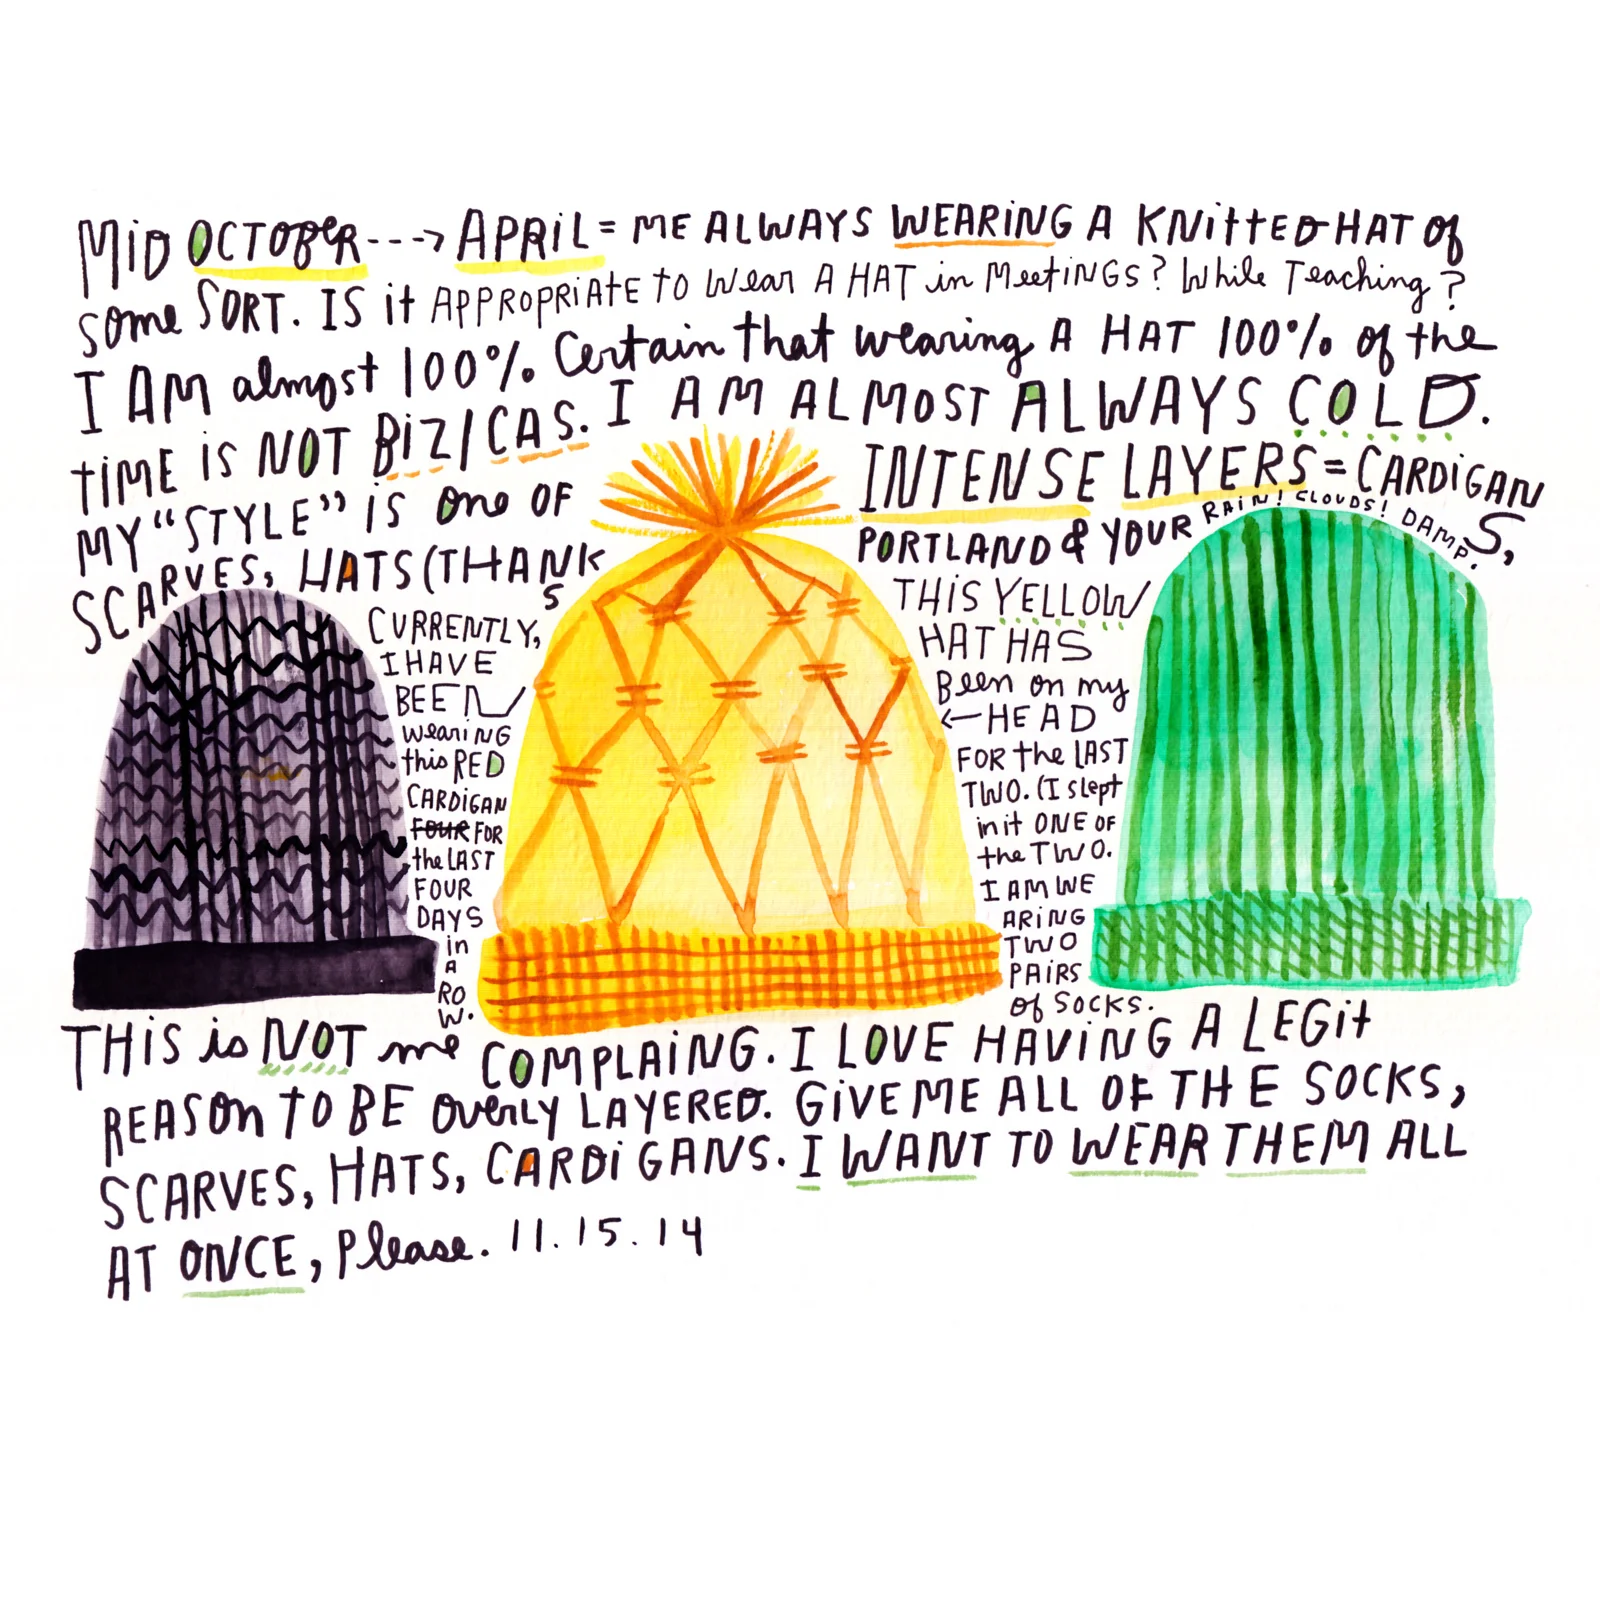 MiD OCTOBER ---> APRiL = ME ALWAYS WEARiNG A KNittED HAT Of
some SORT. IS it APPROPRiATE TO Wear A HAT in MeetiNGS? While Teaching?
I AM almost 100% Certain that wearing A HAT 100% of the
tiME iS NOT BiZ/CAS. I AM ALMOST ALWAYS COLD.
MY "STYLE" iS one OF INTENSE LAYERS = CARDiGANS,
SCARVES, HATS (THANKS PORTLAND & YOUR RAiN! CLOUDS! DAMP.
CURRENTLY,
I HAVE
BEEN
weariNG
this RED
CARDiGAN
FOUR FOR
the LAST
FOUR
DAYS
in
A
RO
W.
THiS YELLOW
HAT HAS
Been on my
<— HEAD
FOR the LAST
TWO. (I slept
in it ONE OF
the TWO.
I AM WE
ARiNG
TWO
PAiRS
of SOCKS.
THiS is NOT me COMPLAiNG. I LOVE HAViNG A LEGit
REASON TO BE OVERLY LAYERED. GiVE ME ALL OF THE SOCKS,
SCARVES, HATS, CARDiGANS. I WANT TO WEAR THEM ALL
AT ONCE, Please. 11.15.14